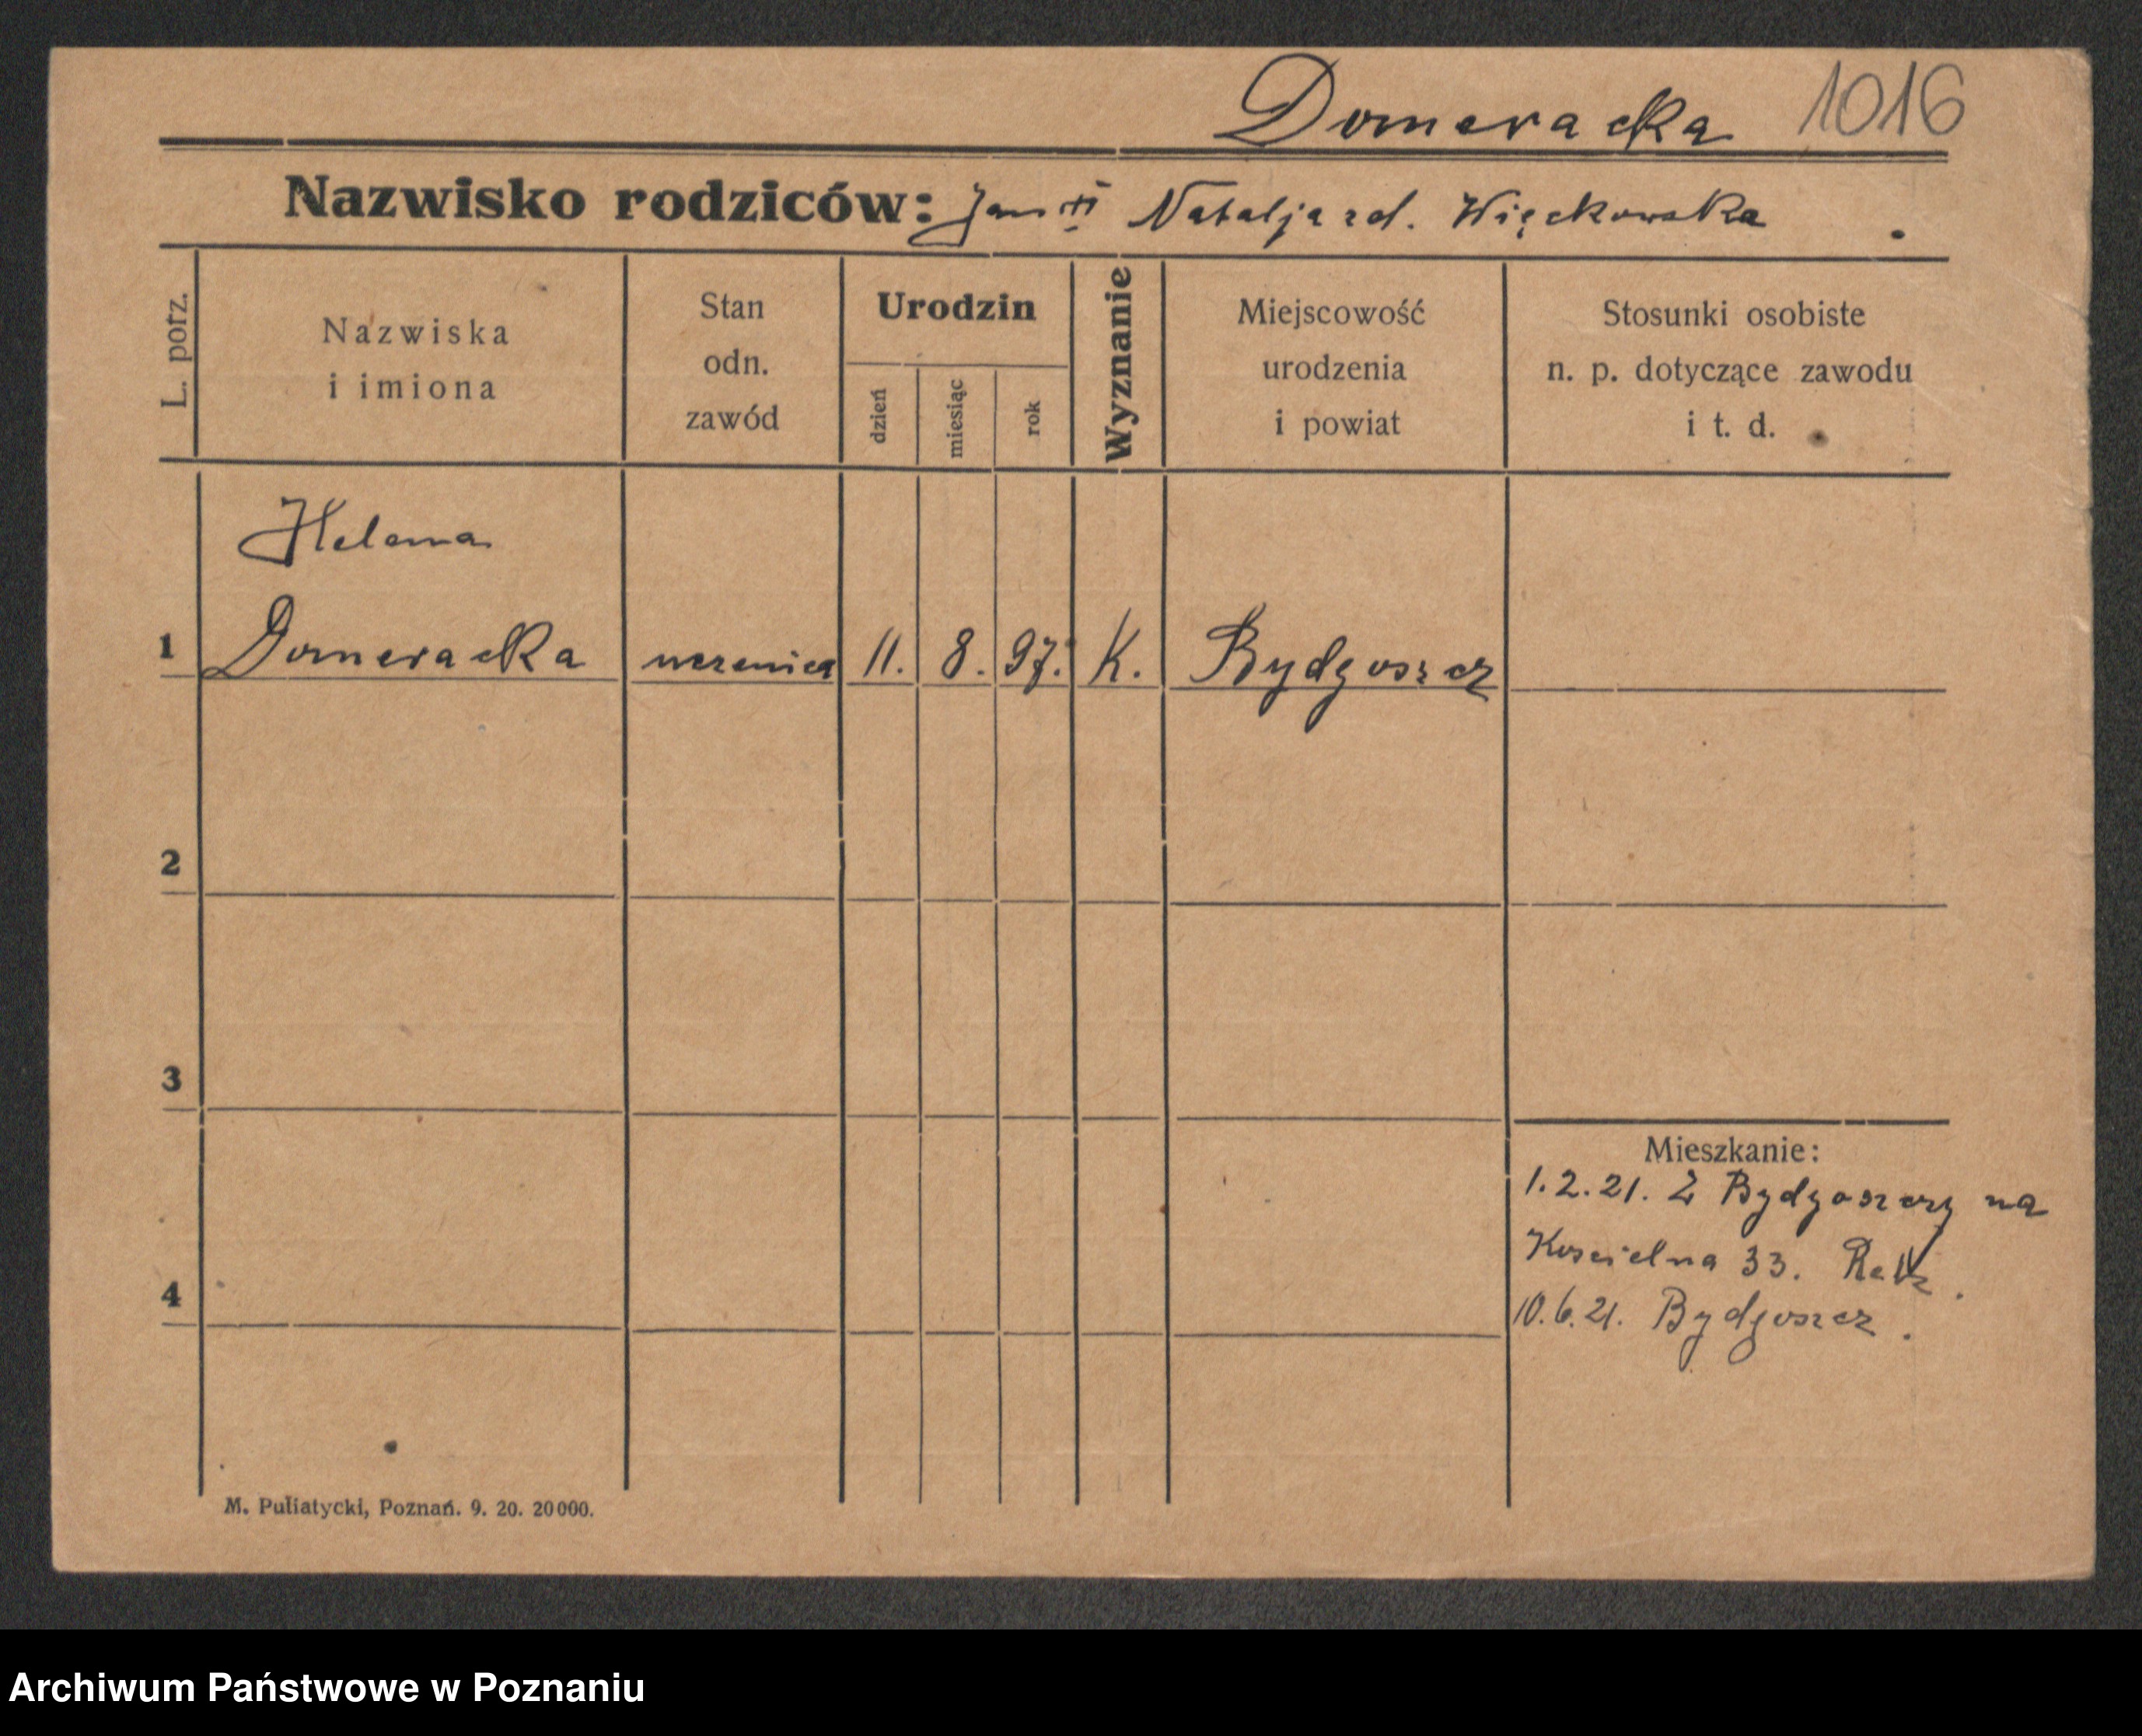 Domeracka 1016
Nazwisko rodziców: Jan Natalja zd. Więckowska
L. porz.
Nazwiska
i imiona
Stan
odn.
zawód
Urodzin
dzień
miesiąc
rok
Wyznanie
Miejscowość
urodzenia
i powiat
Stosunki osobiste
n. p. dotyczące zawodu
i t. d.
Helena
1 Domeracka uczenica 11. 8. 97. K. Bydgoszcz
2
3
4
Mieszkanie:
1.2.21. Z Bydgoszczy na
Koscielna 33.
10.6.21. Bydgoszcz.
M. Puliatycki, Poznań. 9. 20. 20000.
Archiwum Państwowe w Poznaniu